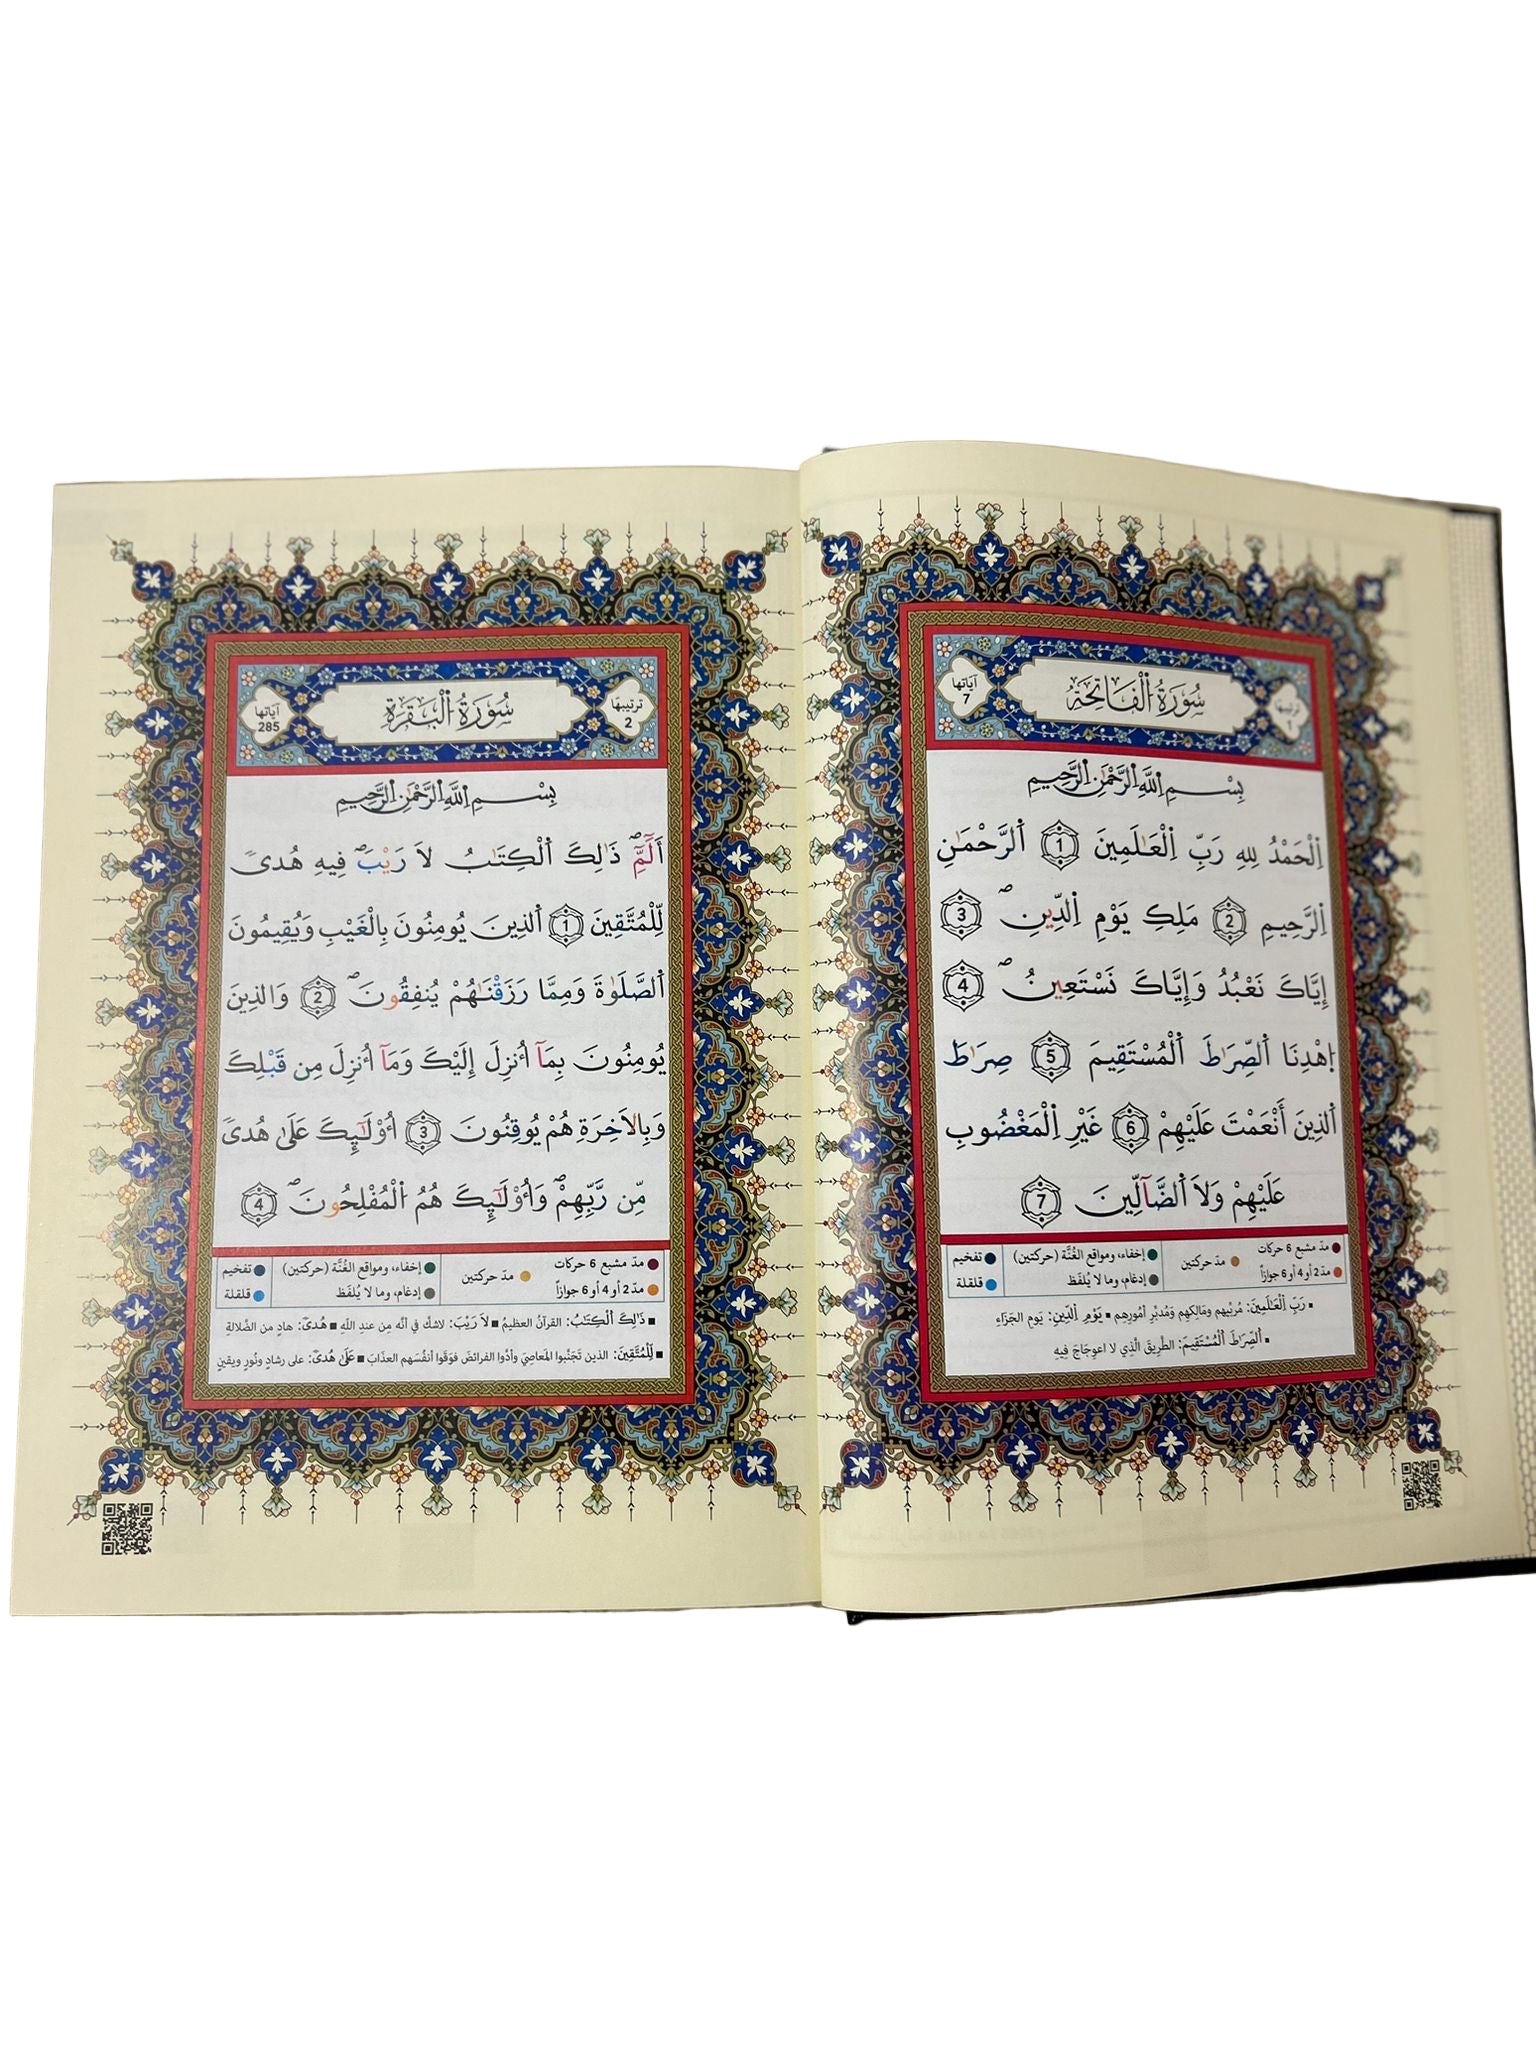 سُورَةُ اُ۬لْفَاتِحَةِ
ترتيبها
1
آياتها
7
بِسْمِ اِ۬للَّهِ اِ۬لرَّحْمَٰنِ اِ۬لرَّحِيمِ
اِ۬لْحَمْدُ لِلهِ رَبِّ اِ۬لْعَٰلَمِينَ 1 اَ۬لرَّحْمَٰنِ
اِ۬لرَّحِيمِ 2 مَلِكِ يَوْمِ اِ۬لدِّينِۖ 3
إِيَّاكَ نَعْبُدُ وَإِيَّاكَ نَسْتَعِينُۖ 4
اِ۪هْدِنَا اَ۬لصِّرَٰطَ اَ۬لْمُسْتَقِيمَ 5 صِرَٰطَ
اَ۬لذِينَ أَنْعَمْتَ عَلَيْهِمْ 6 غَيْرِ اِ۬لْمَغْضُوبِ
عَلَيْهِمْ وَلَا اَ۬لضَّآلِّينَ 7
مدّ مشبع 6 حركات
مدّ 2 أو 4 أو 6 جوازاً
مدّ حركتين
إخفاء، ومواقع الغُنَّة (حركتين)
إدغام، وما لا يُلفَظ
تفخيم
قلقلة
▪ رَبِّ اِ۬لْعَٰلَمِينَ: مُربِّيهم ومَالِكِهم ومُدبِّر أمُورِهِم ▪ يَوْمِ اِ۬لدِّينِ: يَومِ الجَزَاءِ
▪ اَ۬لصِّرَٰطَ اَ۬لْمُسْتَقِيمَ: الطَّرِيقَ الَّذِي لا اعوِجَاجَ فِيهِ
سُورَةُ اُ۬لْبَقَرَةِ
ترتيبها
2
آياتها
285
بِسْمِ اِ۬للَّهِ اِ۬لرَّحْمَٰنِ اِ۬لرَّحِيمِ
أَلَٓمِّٓۖ ذَٰلِكَ اَ۬لْكِتَٰبُ لَا رَيْبَۖ فِيهِ هُدىٗ
لِّلْمُتَّقِينَ 1 اَ۬لذِينَ يُومِنُونَ بِالْغَيْبِ وَيُقِيمُونَ
اَ۬لصَّلَوٰةَ وَمِمَّا رَزَقْنَٰهُمْ يُنفِقُونَۖ 2 وَالذِينَ
يُومِنُونَ بِمَآ أُنزِلَ إِلَيْكَ وَمَآ أُنزِلَ مِن قَبْلِكَ
وَبِالَاخِرَةِ هُمْ يُوقِنُونَ 3 أُوْلَٰٓئِكَ عَلَىٰ هُدىٗ
مِّن رَّبِّهِمْۖ وَأُوْلَٰٓئِكَ هُمُ اُ۬لْمُفْلِحُونَۖ 4
مدّ مشبع 6 حركات
مدّ 2 أو 4 أو 6 جوازاً
مدّ حركتين
إخفاء، ومواقع الغُنَّة (حركتين)
إدغام، وما لا يُلفَظ
تفخيم
قلقلة
▪ ذَٰلِكَ اَ۬لْكِتَٰبُ: القرآنُ العظيمُ ▪ لَا رَيْبَ: لاشكَّ في أنَّه مِن عندِ اللَّهِ ▪ هُدىٗ: هادٍ من الضَّلالةِ
▪ لِّلْمُتَّقِينَ: الذين تَجَنَّبوا المَعاصِيَ وأدَّوا الفرائضَ فوَقَوا أنفُسَهم العذَابَ ▪ عَلَىٰ هُدىٗ: على رشادٍ ونُورٍ ويقينٍ